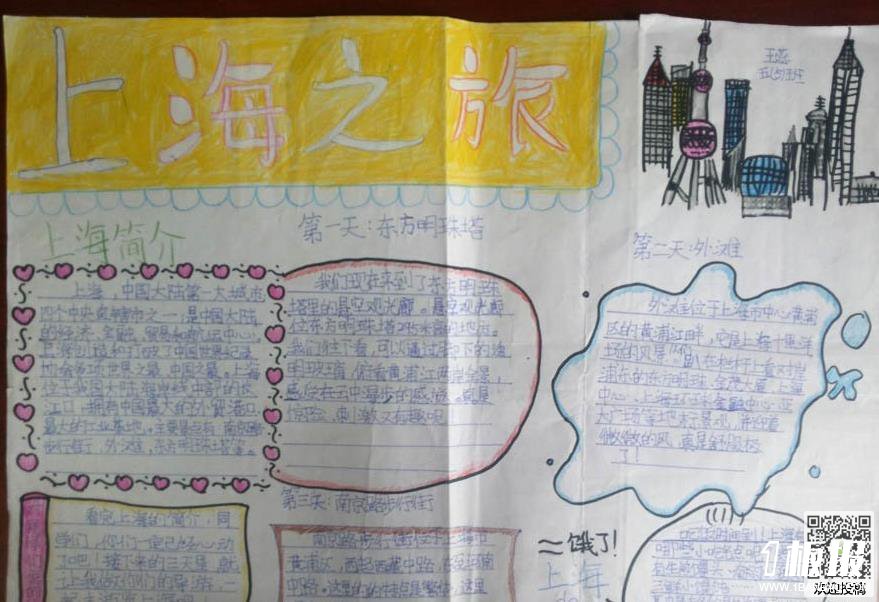 上海之旅
王燕
上海简介
上海，中国大陆第一大城市
四个中央直辖市之一，是中国大陆
的经济、金融、贸易和航运中心。
上海创造和打破了中国世界纪录
协会多项世界之最、中国之最。上海
位于我国大陆海岸线中部的长
江口，拥有中国最大的外贸港口
最大的工业基地。主要景点有：南京路
步行街，外滩，东方明珠塔等。
第一天：东方明珠塔
我们现在来到了东方明珠
塔里的悬空观光廊。悬空观光廊
位东方明珠塔259米高的地方。
我们往下看，可以通过脚下的透
明玻璃，俯看黄浦江两岸全景，
感受在云中漫步的感觉。真是
惊险、刺激又有趣呢！
第二天：外滩
外滩位于上海市中心黄浦
区的黄浦江畔，它是上海十里洋
场的风景
浦东的东方明珠、金茂大厦、上海
中心、上海环球金融中心、正
大广场等地标景观，并迎着
微微的风，真是舒服极
了！
看完上海的简介，同
学们，你们一定已经心动
了吧！接下来的三天里，就
让我做你们的导游，一
第三天：南京路步行街
南京路步行街位于上海市
黄浦区，西起西藏中路，
中路，这里的
饿了！
上海
欢迎投稿